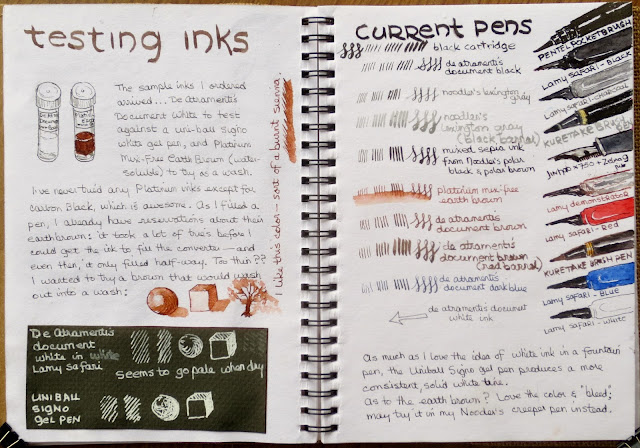 testing inks
The sample inks I ordered
arrived... De Atramentis
Document White to test
against a uni-ball Signo
white gel pen, and Platinum
Mixi-Free Earth Brown (water-
soluble) to try as a wash.
I've never tried any Platinum inks except for
Carbon Black, which is awesome. As I filled a
pen, I already have reservations about their
earth brown: it took a lot of tries before I
could get the ink to fill the converter — and
even then, it only filled half-way. Too thin??
I wanted to try a brown that would wash
out into a wash:
I like this color — sort of a burnt sienna.
De Atramentis
document
white in white
Lamy Safari
seems to go pale when dry
UNIBALL
SIGNO
GEL PEN
current pens
black cartridge
de atramentis
document black
noodler's lexington
gray
noodler's
lexington gray
(black barrel)
mixed sepia ink
from Noodler's polar
black & polar brown
platinum mix-free
earth brown
de atramentis
document brown
de atramentis
document brown
(red barrel)
de atramentis
document dark blue
de atramentis document
white ink
PENTEL POCKET BRUSH
Lamy Safari - Black
Lamy Safari - charcoal
KURETAKE BRUSH PEN
Jinhao x750 + Zebra G
nib
Lamy demonstrator
Lamy Safari - Red
KURETAKE BRUSH PEN
Lamy Safari - Blue
Lamy Safari - White
As much as I love the idea of white ink in a fountain
pen, the Uniball Signo gel pen produces a more
consistent, solid white line.
As to the earth brown? Love the color & "bleed;"
may try it in my Noodler's creeper pen instead.